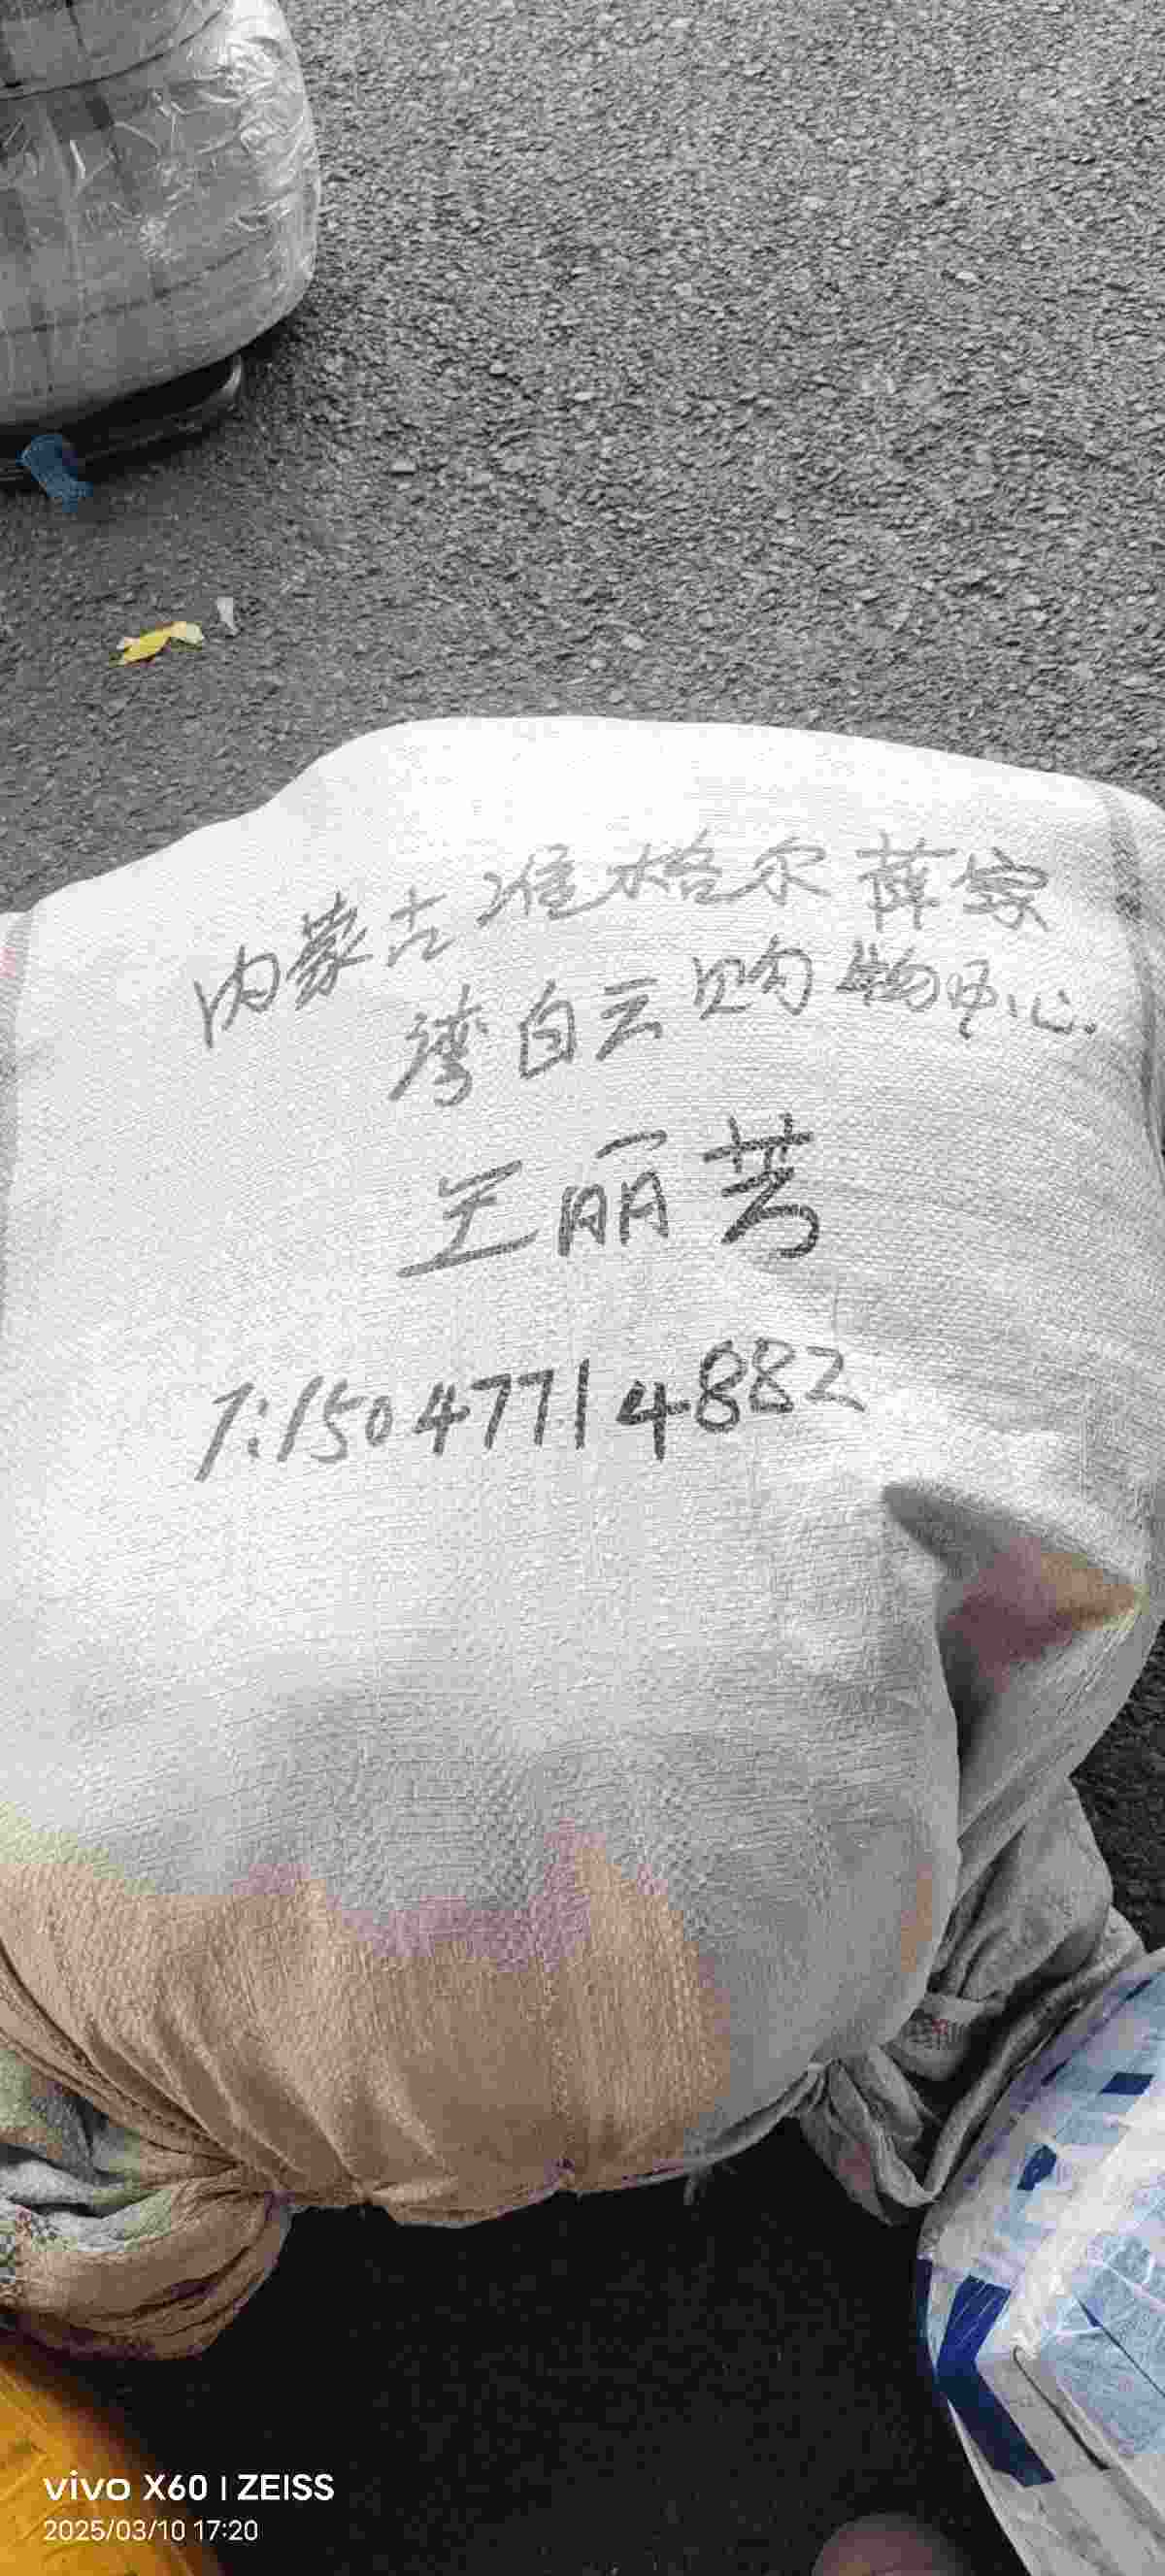 内蒙古准格尔薛家
湾白云购物中心.
王丽芳
T:15047714882
vivo X60 | ZEISS
2025/03/10 17:20